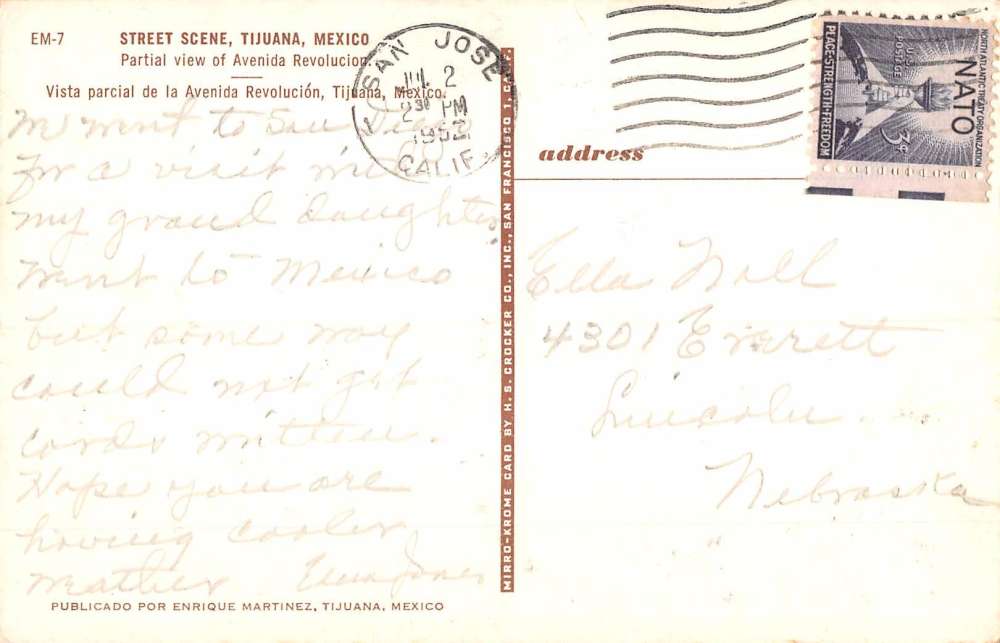 EM-7
STREET SCENE, TIJUANA, MEXICO
Partial view of Avenida Revolucion.
Vista parcial de la Avenida Revolución, Tijuana, Mexico.
We went to San
for a visit with
my grand daughter
went to Mexico
but some way
could not get
cards written.
Hope you are
having cooler
weather Jones
PUBLICADO POR ENRIQUE MARTINEZ, TIJUANA, MEXICO
MIRRO-KROME CARD BY H. S. CROCKER CO., INC., SAN FRANCISCO 1, CALIF.
SAN JOSE
JUL 2
2 30 PM
1952
CALIF.
NORTH ATLANTIC TREATY ORGANIZATION
NATO
U.S. POSTAGE
3¢
PLACE·STRENGTH·FREEDOM
address
Ella Noll
4301 Everett
Lincoln
Nebraska